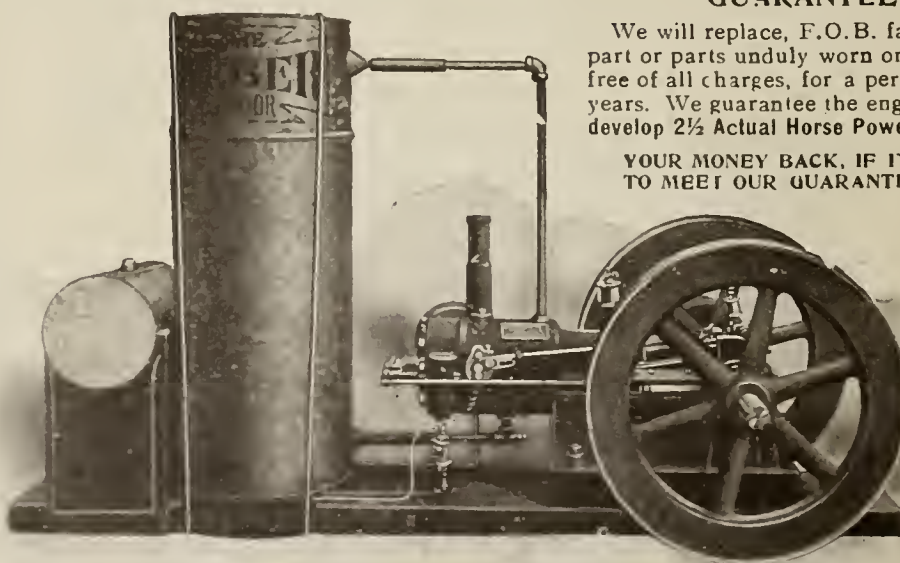 GUARANTEE
We will replace, F.O.B. fa
part or parts unduly worn or
free of all charges, for a per
years. We guarantee the eng
develop 2½ Actual Horse Powe
YOUR MONEY BACK, IF IT
TO MEET OUR GUARANTE